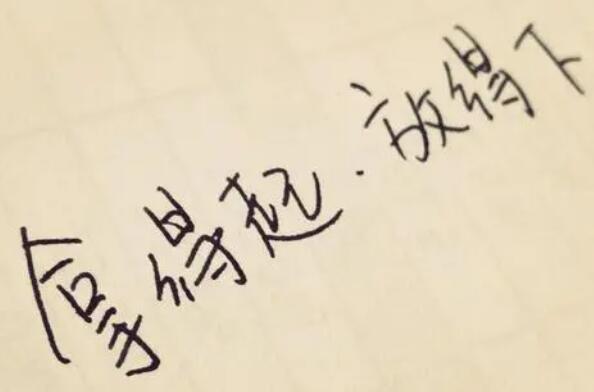 拿得起.放得下